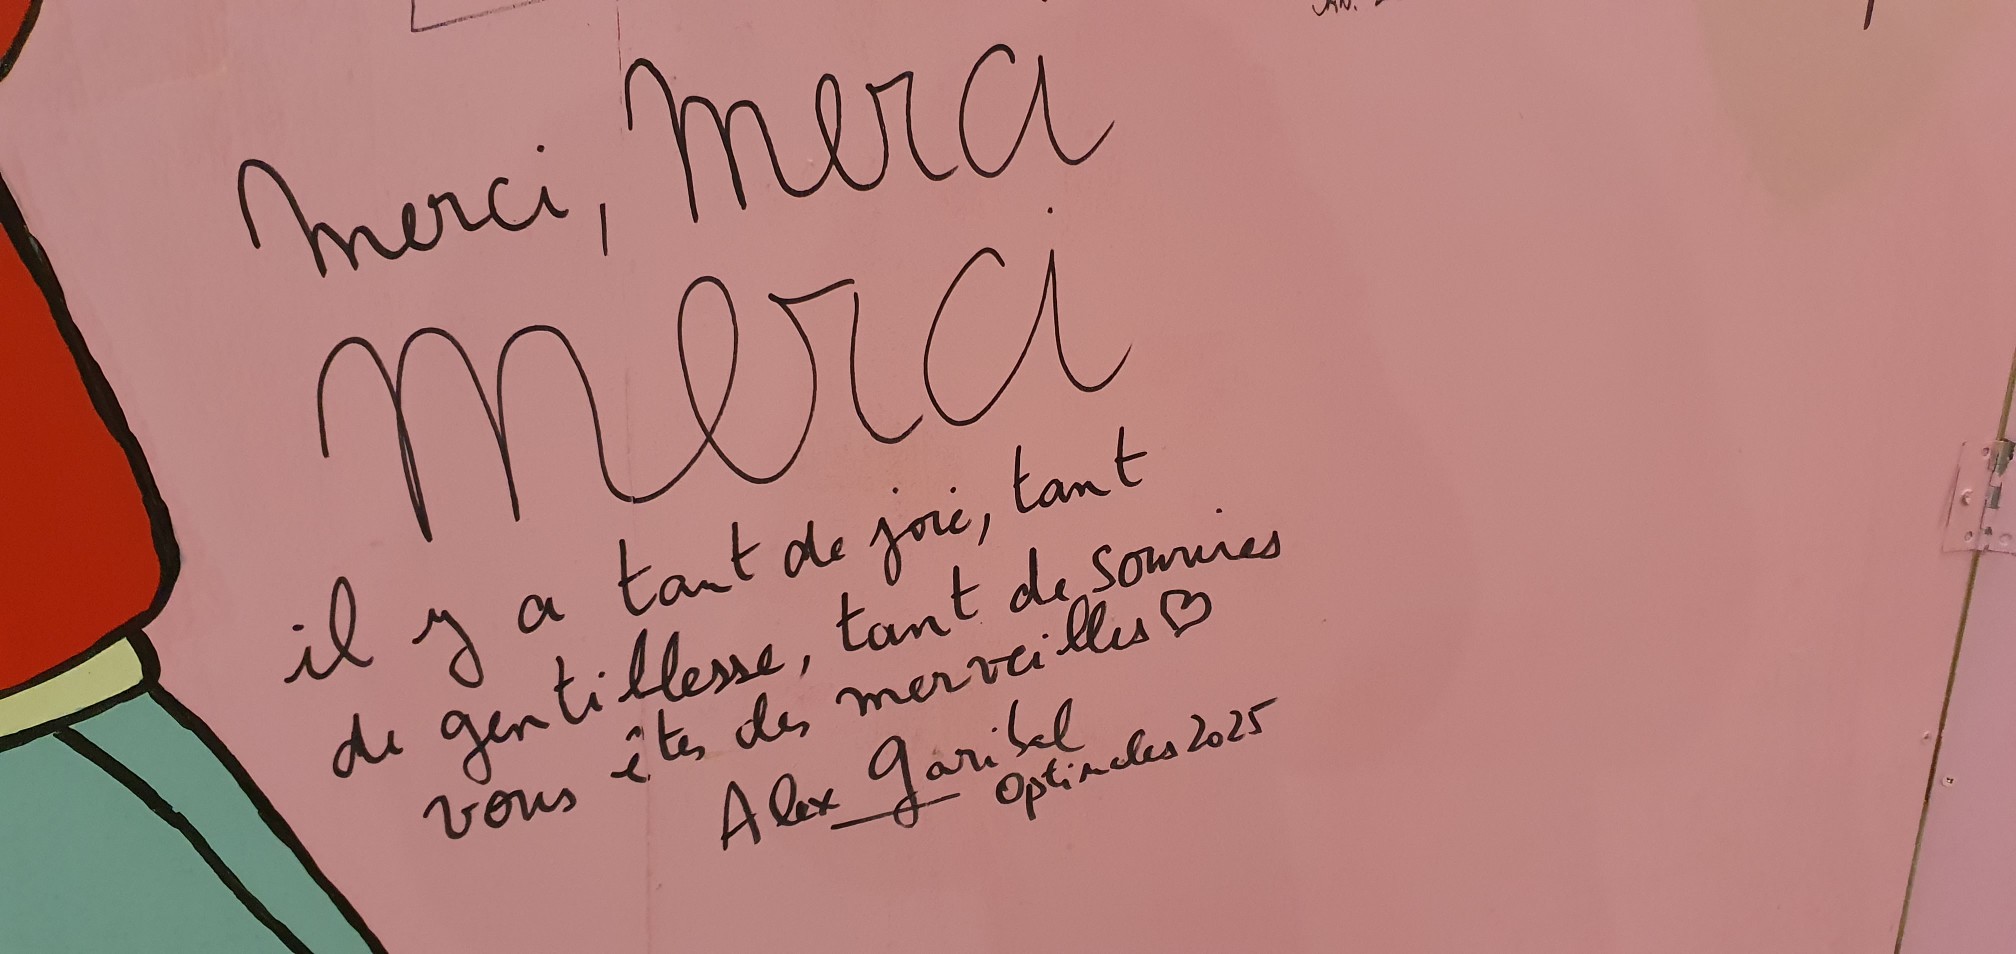 JAN.
merci, merci
merci
il y a tant de joie, tant
de gentillesse, tant de sourires
vous êtes des merveilles♡
Alex Garibal
Optimales 2025